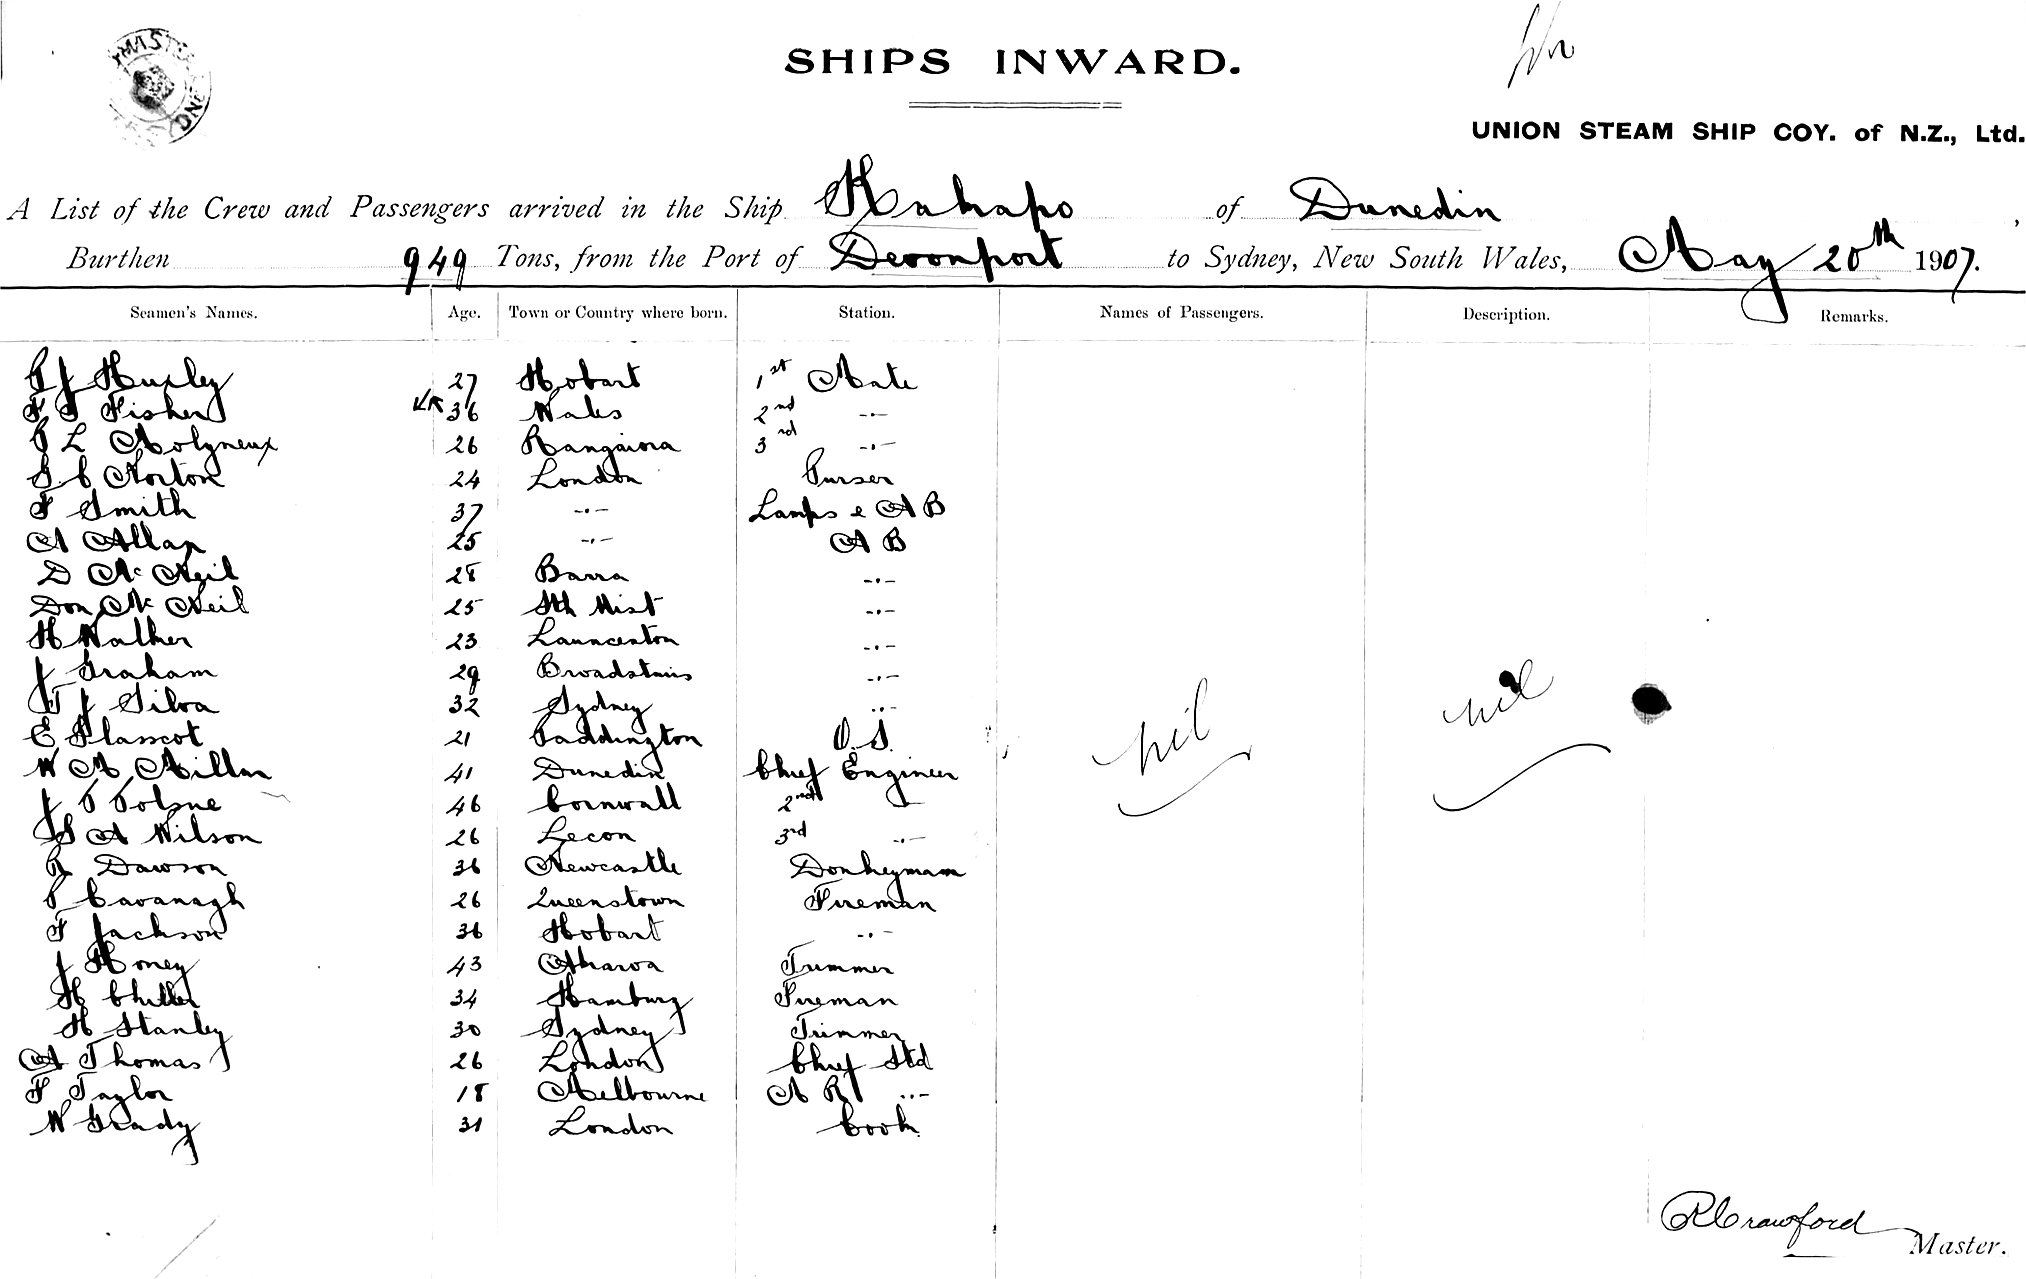 SHIPS INWARD.
UNION STEAM SHIP COY. of N.Z., Ltd.
A List of the Crew and Passengers arrived in the Ship Kakapo of Dunedin
Burthen 949 Tons, from the Port of Devonport to Sydney, New South Wales, May 20th 1907.
Seamen's Names. Age. Town or Country where born. Station. Names of Passengers. Description. Remarks.
P J Huxley 27 Hobart 1st Mate
F S Fisher 36 Wales 2nd -"-
P L Molyneux 26 Rangiora 3rd -"-
S. C Norton 24 London Purser
F Smith 37 -"- Lamps & A B
A Allan 25 -"- A B
D Mc Neil 28 Barra -"-
Don Mc Neil 25 Sth Uist -"-
H Walker 23 Launcenton -"-
J Graham 29 Broadstairs -"-
T J Silva 32 Sydney -"-
E Flasscot 21 Paddington O. S.
W A Millar 41 Dunedin Chief Engineer
J P Polgne 46 Cornwall 2nd -"-
S A Wilson 26 Lecon 3rd -"-
R Dawson 36 Newcastle Donkeyman
P Cavanagh 26 Queenstown Fireman
F Jackson 36 Hobart -"-
J Honey 43 Akaroa Trimmer
H Chiller 34 Hamburg Fireman
H Stanley 30 Sydney Trimmer
A Thomas 26 London Chief Std
F Taylor 18 Melbourne A R -"-
W Grady 31 London Cook
nil nil
R Crawford
Master.